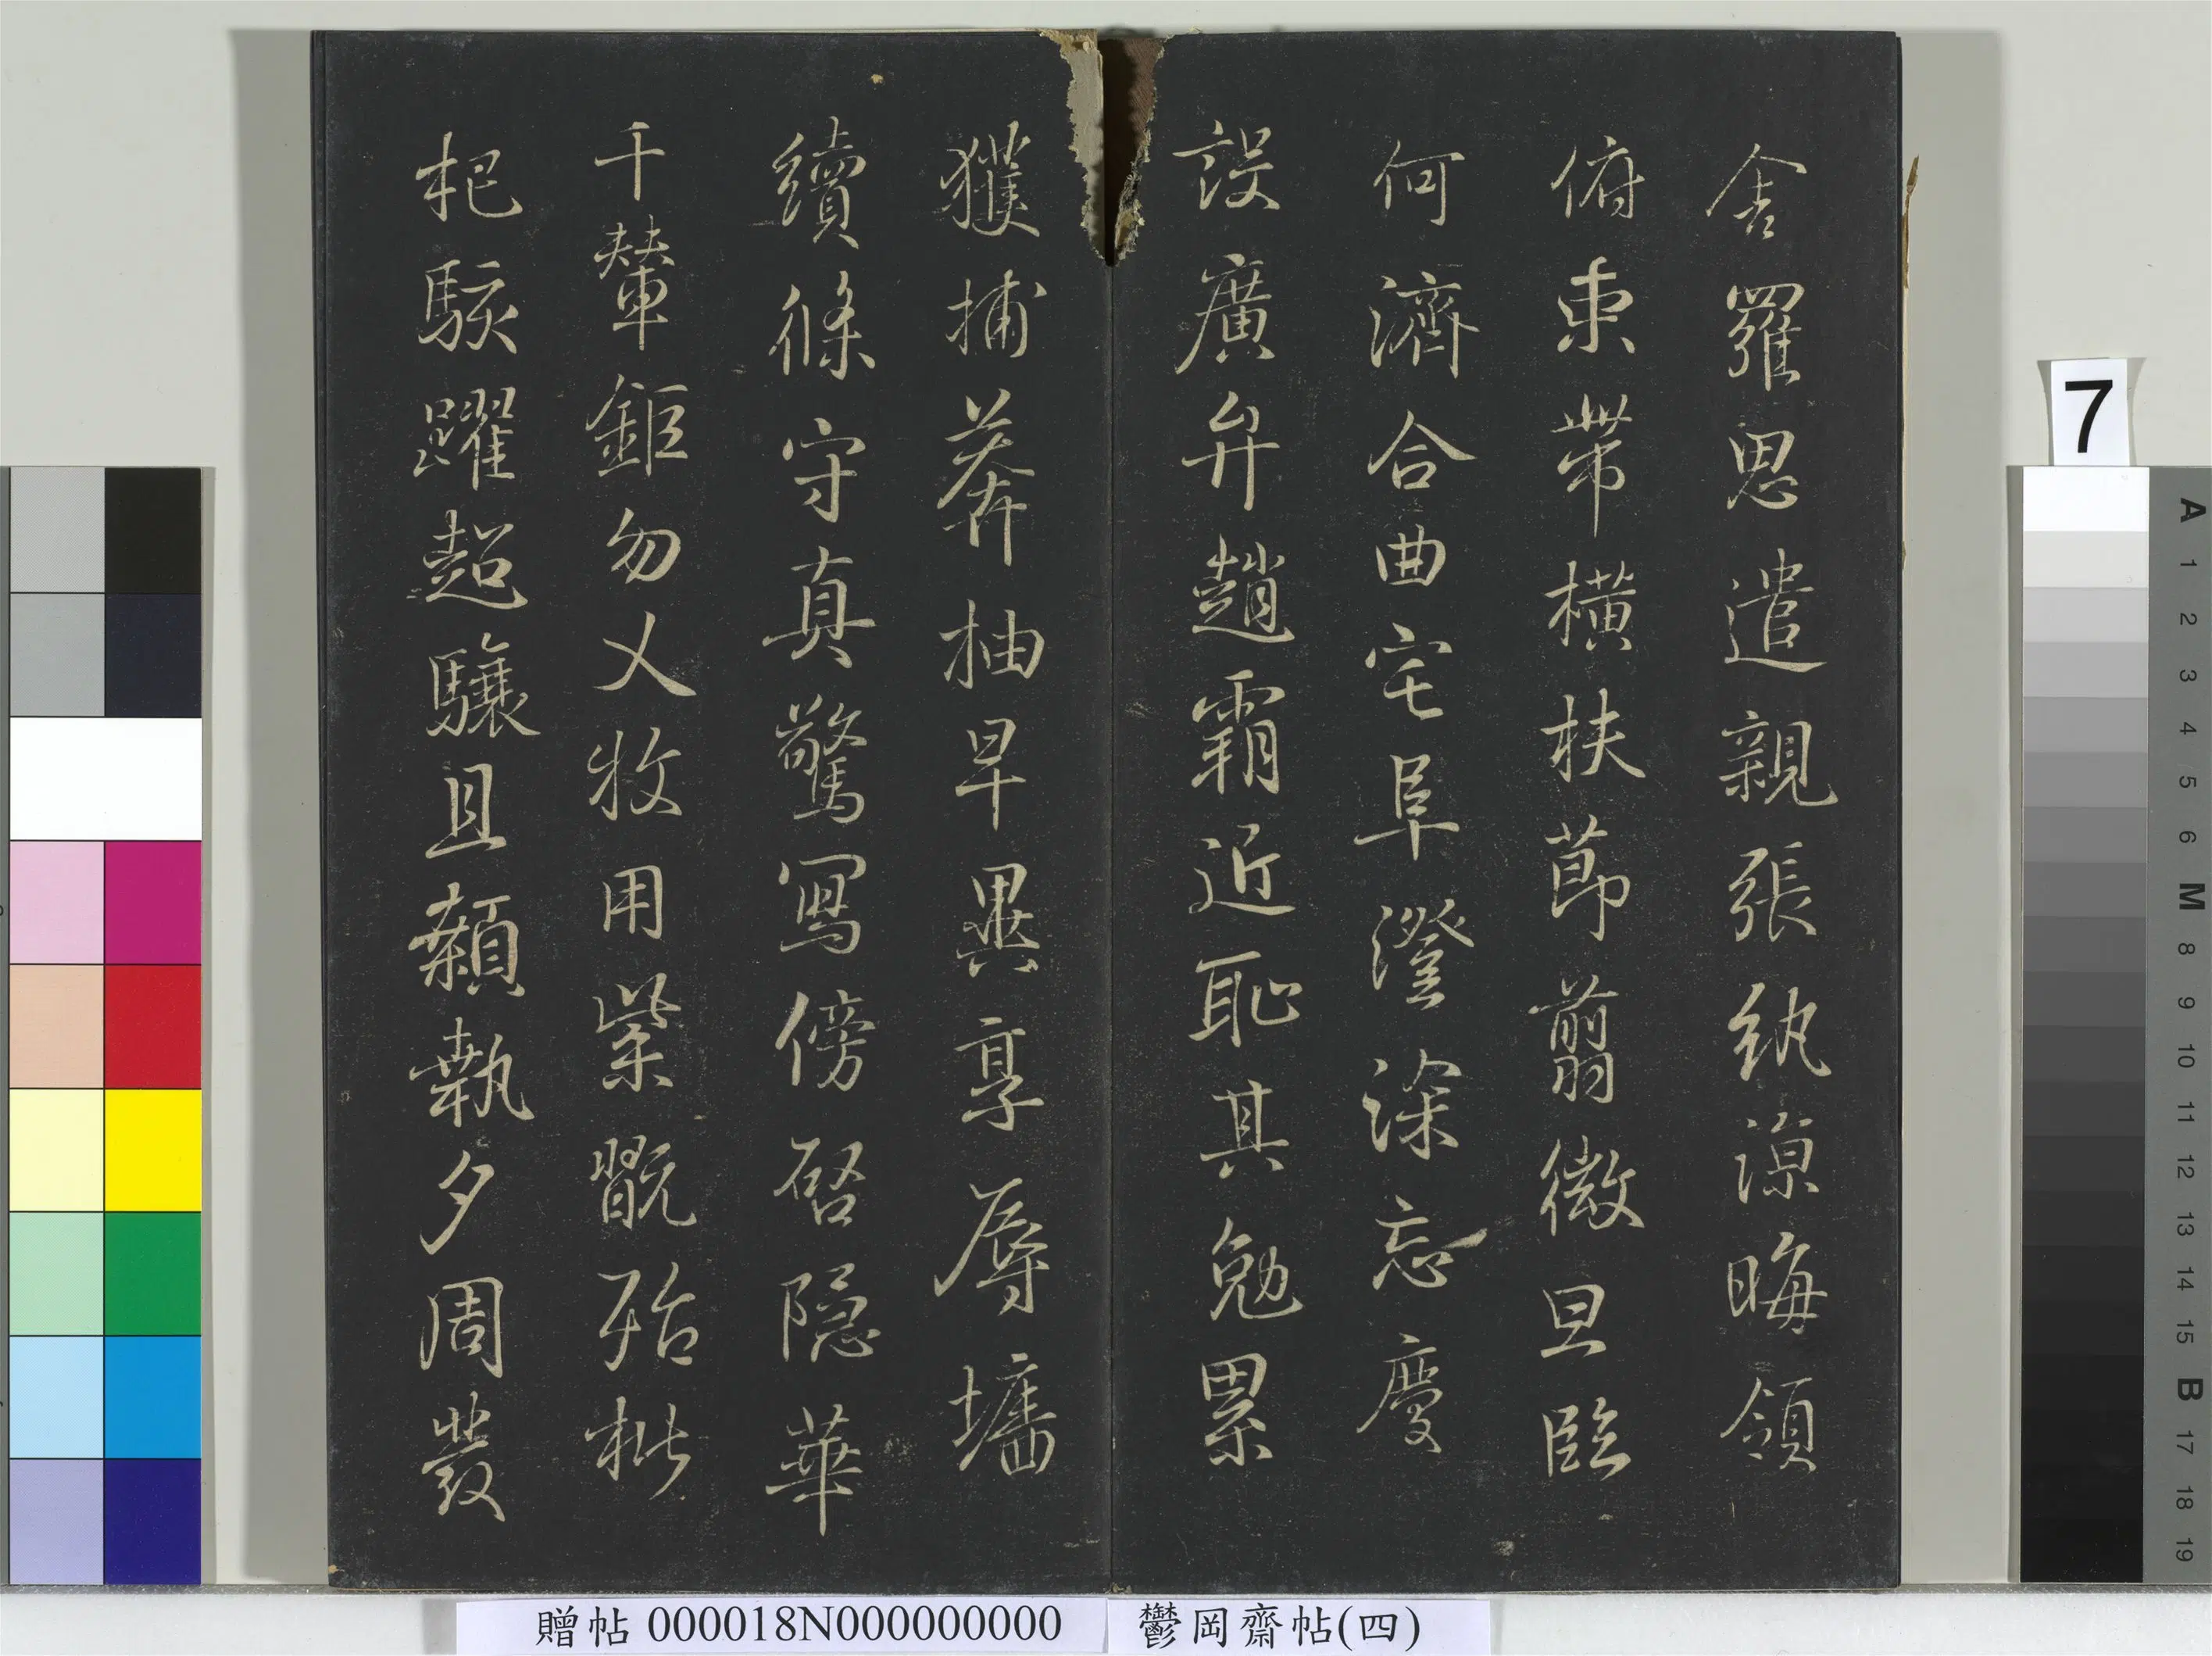 舍羅思遣親張紈涼晦領
俯束帶橫扶莭翦微旦臨
何濟合曲宅阜澄深忘慶
設廣弁趙霸近恥其勉累
獲捕莽抽早異享辱墻
續條守真驚寫傍啓隱華
千輦鉅勿乂牧用紫翫殆枇
杷駭躍超驤且顙執夕周發
7
A 1 2 3 4 5 6 M 8 9 10 11 12 13 14 15 B 17 18 19
贈帖 000018N000000000 鬱岡齋帖(四)